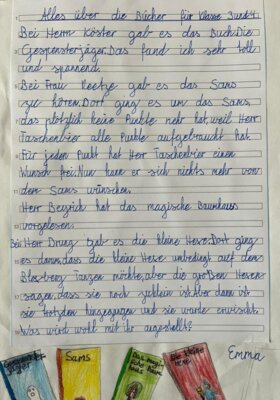 Alles über die Bücher für Klasse 3 und 4
Bei Herrn Köster gab es das Buch: Die
Gespensterjäger. Das fand ich sehr toll
und spannend.
Bei Frau Reetze gab es das Sams
zu hören. Dort ging es um das Sams,
das plötzlich keine Punkte mehr hat, weil Herr
Taschenbier alle Punkte aufgebraucht hat.
Für jeden Punkt hat Herr Taschenbier einen
Wunsch frei. Nun kann er sich nichts mehr von
dem Sams wünschen.
Herr Beyrich hat das magische Baumhaus
vorgelesen.
Bei Herr Drung gab es die kleine Hexe. Dort ging
es darum, dass die kleine Hexe unbedingt auf dem
Blocksberg Tanzen möchte, aber die großen Hexen
sagen, dass sie noch zu klein ist. Aber dann ist
sie trotzdem hingegangen und sie wurde erwischt.
Was wird wohl mit ihr angestellt?
Emma
Sams
Die kleine
Hexe